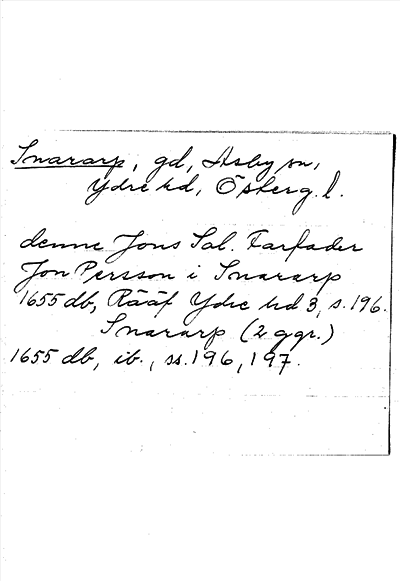 Snararp, gd, Asby sn,
Ydre hd, Österg. l.
denne Jons Sal. Farfader
Jon Persson i Snararp
1655 db, Rääf Ydre hd 3, s. 196.
Snararp (2 ggr.)
1655 db, ib., ss. 196, 197.